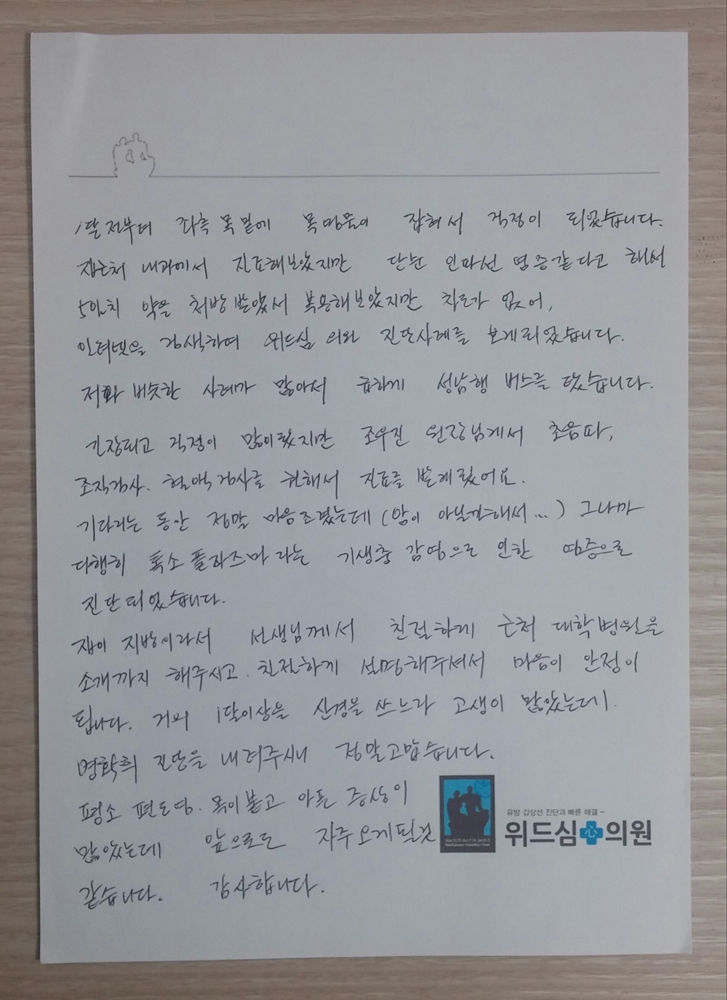 1달전부터 좌측 목밑에 목멍울이 잡혀서 걱정이 되었습니다.
집근처 내과에서 진료해보았지만 단순 인파선 염증같다고 해서
5일치 약을 처방 받았서 복용해보았지만 차도가 없어,
인터넷을 검색하여 위드심 의원 진단사례를 보게되었습니다.
저와 비슷한 사례가 많아서 급하게 성남행 버스를 탔습니다.
긴장되고 걱정이 많이됬지만 조우진 원장님께서 초음파,
조직검사. 혈액검사를 권해서 진료를 받게됬어요.
기다리는 동안 정말 마음조렸는데 (암이 아닐까해서...) 그나마
다행히 톡소플라즈마 라는 기생충 감염으로 인한 염증으로
진단되었습니다.
집이 지방이라서 선생님께서 친절하게 근처 대학병원을
소개까지 해주시고. 친절하게 설명해주셔서 마음이 안정이
됩니다. 거의 1달이상을 신경을 쓰느라 고생이 많았는데.
명확희 진단을 내려주시니 정말고맙습니다.
평소 편도염. 목이붓고 아픈 증상이
많았는데 앞으로도 자주오게될것
같습니다. 감사합니다.
유방 갑상선 진단과 빠른 해결~
위드심 의원